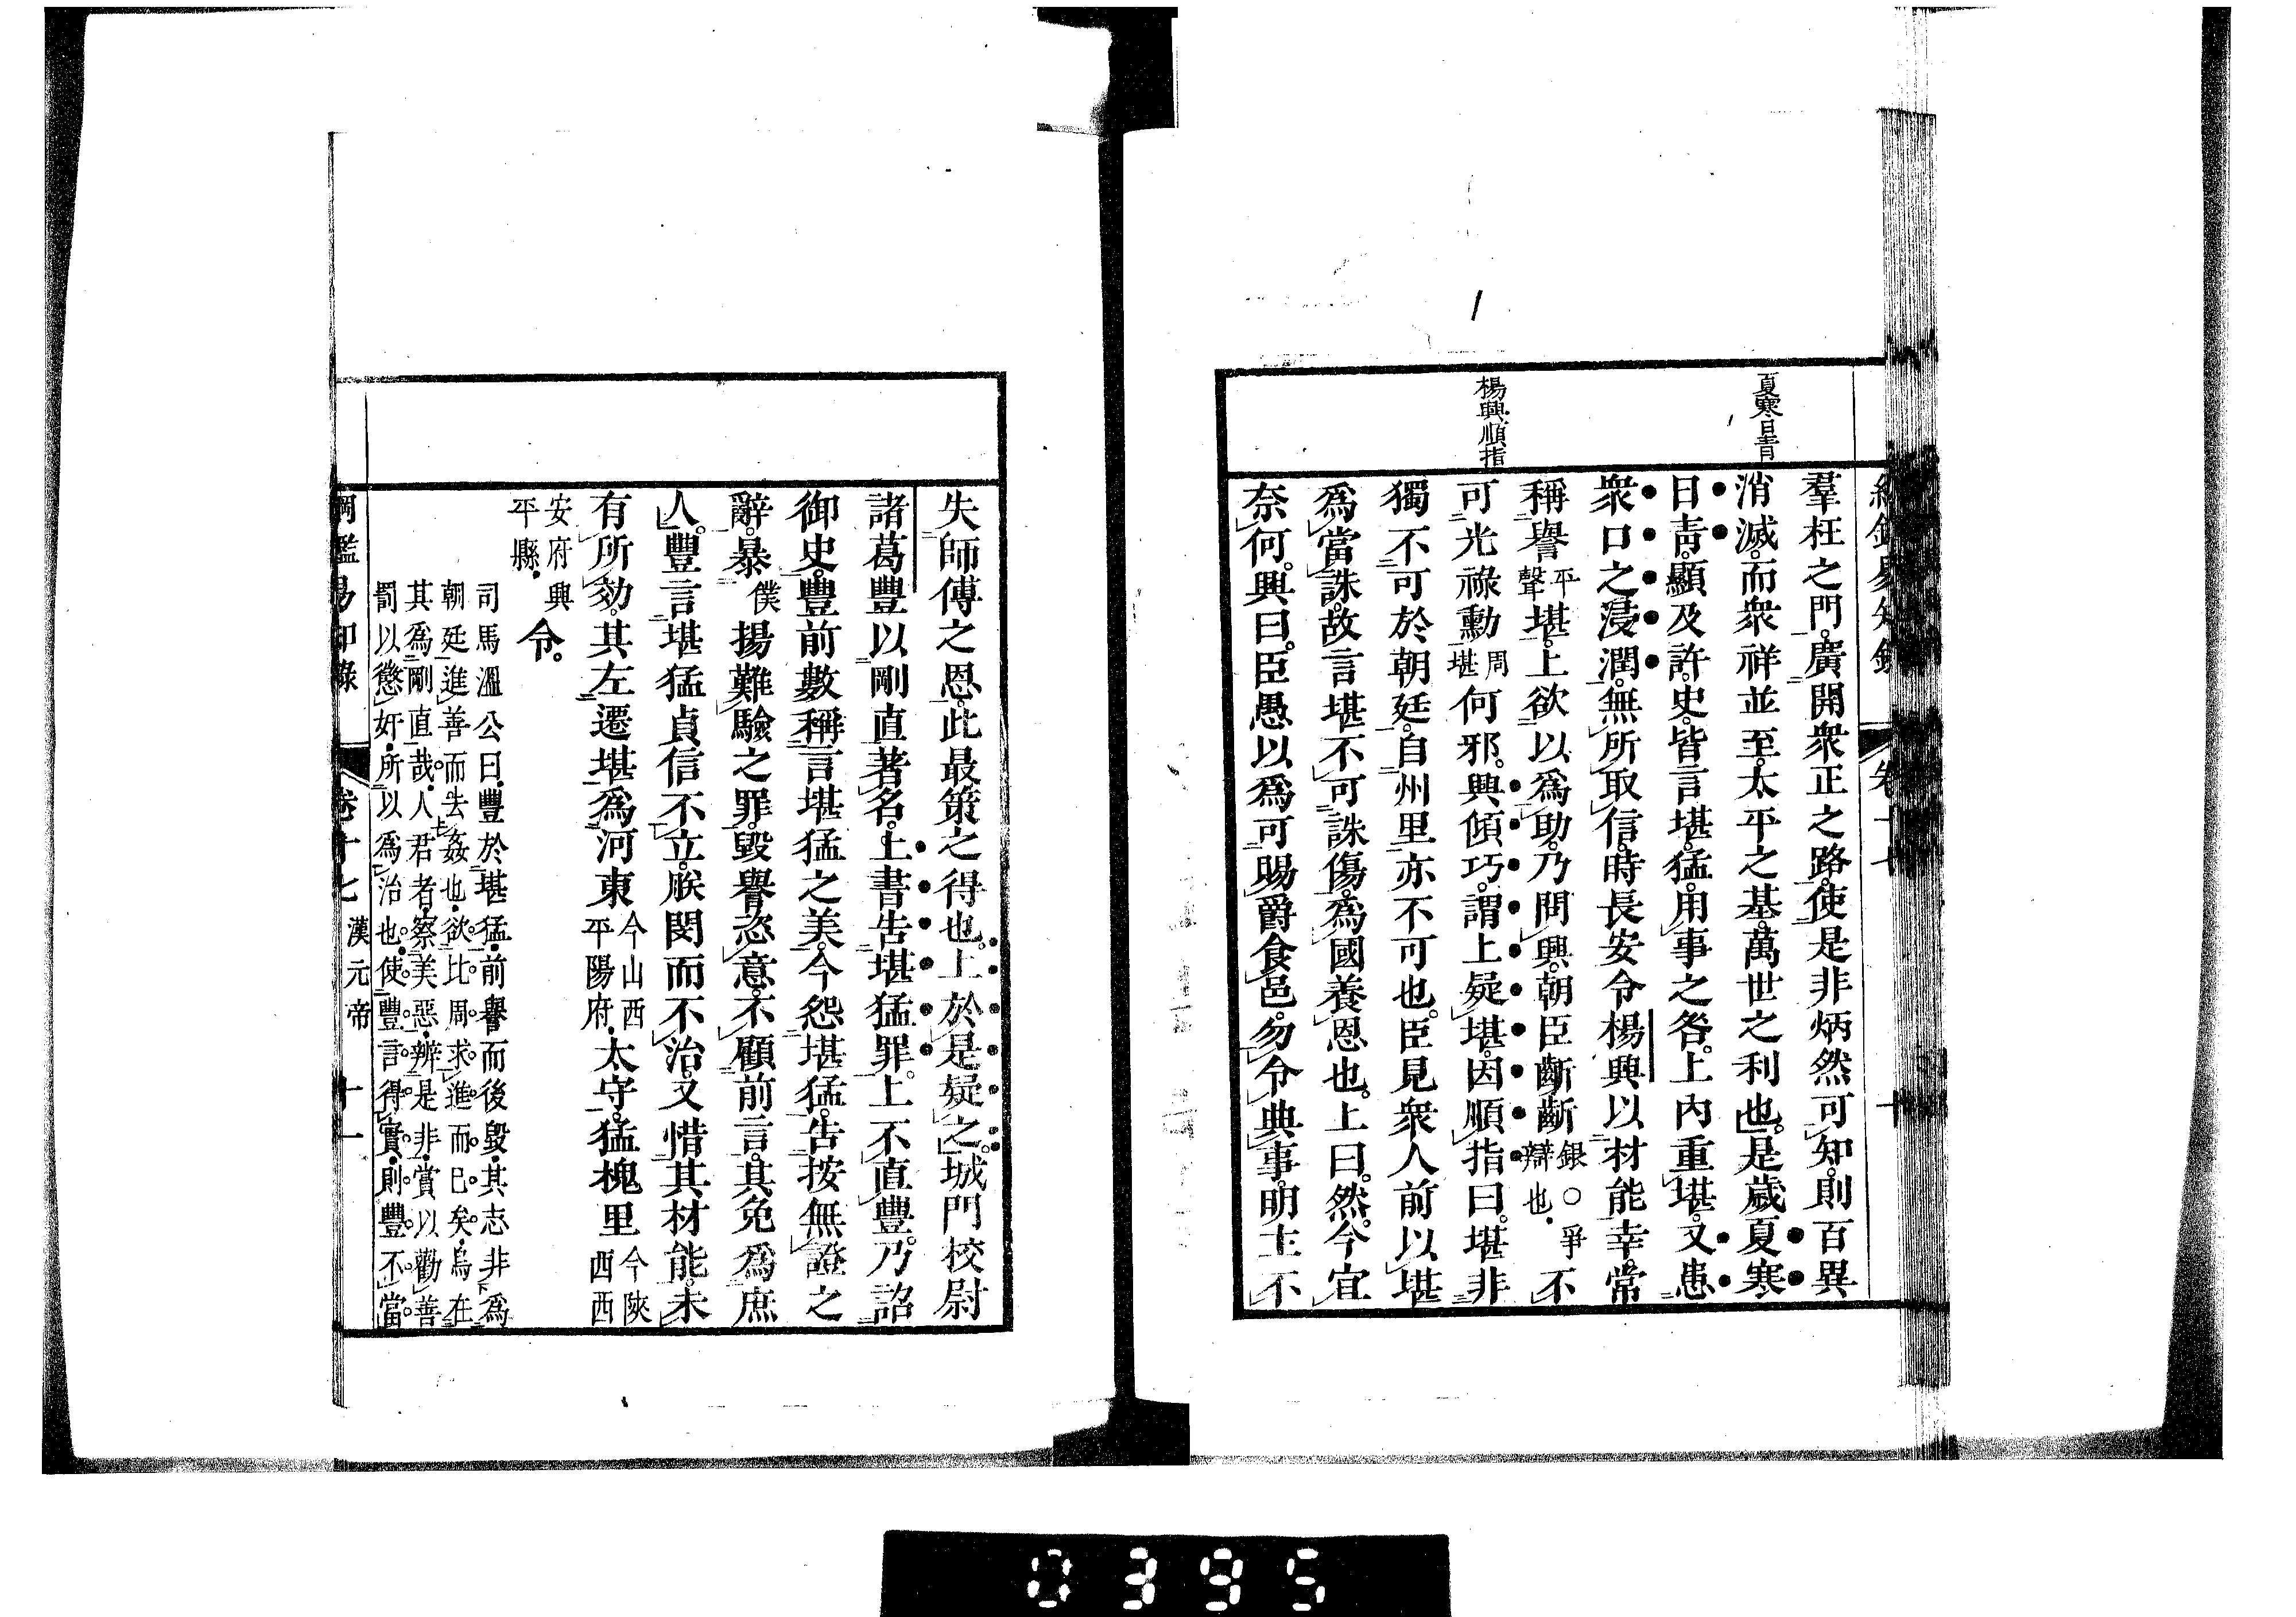 夏寒日青
楊興順指
羣枉之門。廣開衆正之路。使是非炳然可知。則百異
消滅。而衆祥並至。太平之基。萬世之利也。是歲夏寒
日靑。顯及許史。皆言堪猛用事之咎。上內重堪。又患
衆口之浸潤。無所取信。時長安令楊興以材能幸。常
稱譽平聲堪。上欲以爲助。乃問興。朝臣齗齗銀○爭辯也。不
可光祿勳周堪何邪。興傾巧。謂上疑堪。因順指曰。堪非
獨不可於朝廷。自州里亦不可也。臣見衆人前以堪
爲當誅。故言堪不可誅傷。爲國養恩也。上曰。然。今宜
奈何。興曰。臣愚以爲可賜爵食邑。勿令典事。明主不
失師傅之恩。此最策之得也。上於是疑之。城門校尉
諸葛豐以剛直著名。上書告堪猛罪。上不直豐。乃詔
御史。豐前數稱言堪猛之美。今怨堪猛。告按無證之
辭。暴僕揚難驗之罪。毀譽恣意。不顧前言。其免爲庶
人。豐言堪猛貞信不立。朕閔而不治。又惜其材能。未
有所効。其左遷堪爲河東今山西平陽府。太守。猛槐里今陝西西
安府興平縣。令。
司馬溫公曰。豐於堪猛。前譽而後毀。其志非爲
朝廷進善而去姦也。欲比周求進而已矣。烏在
其爲剛直哉。人君者。察美惡。辨是非。賞以勸善
罰以懲奸。所以爲治也。使豐言得實。則豐不當
綱鑑易知錄 卷十七 漢元帝 十一
0395